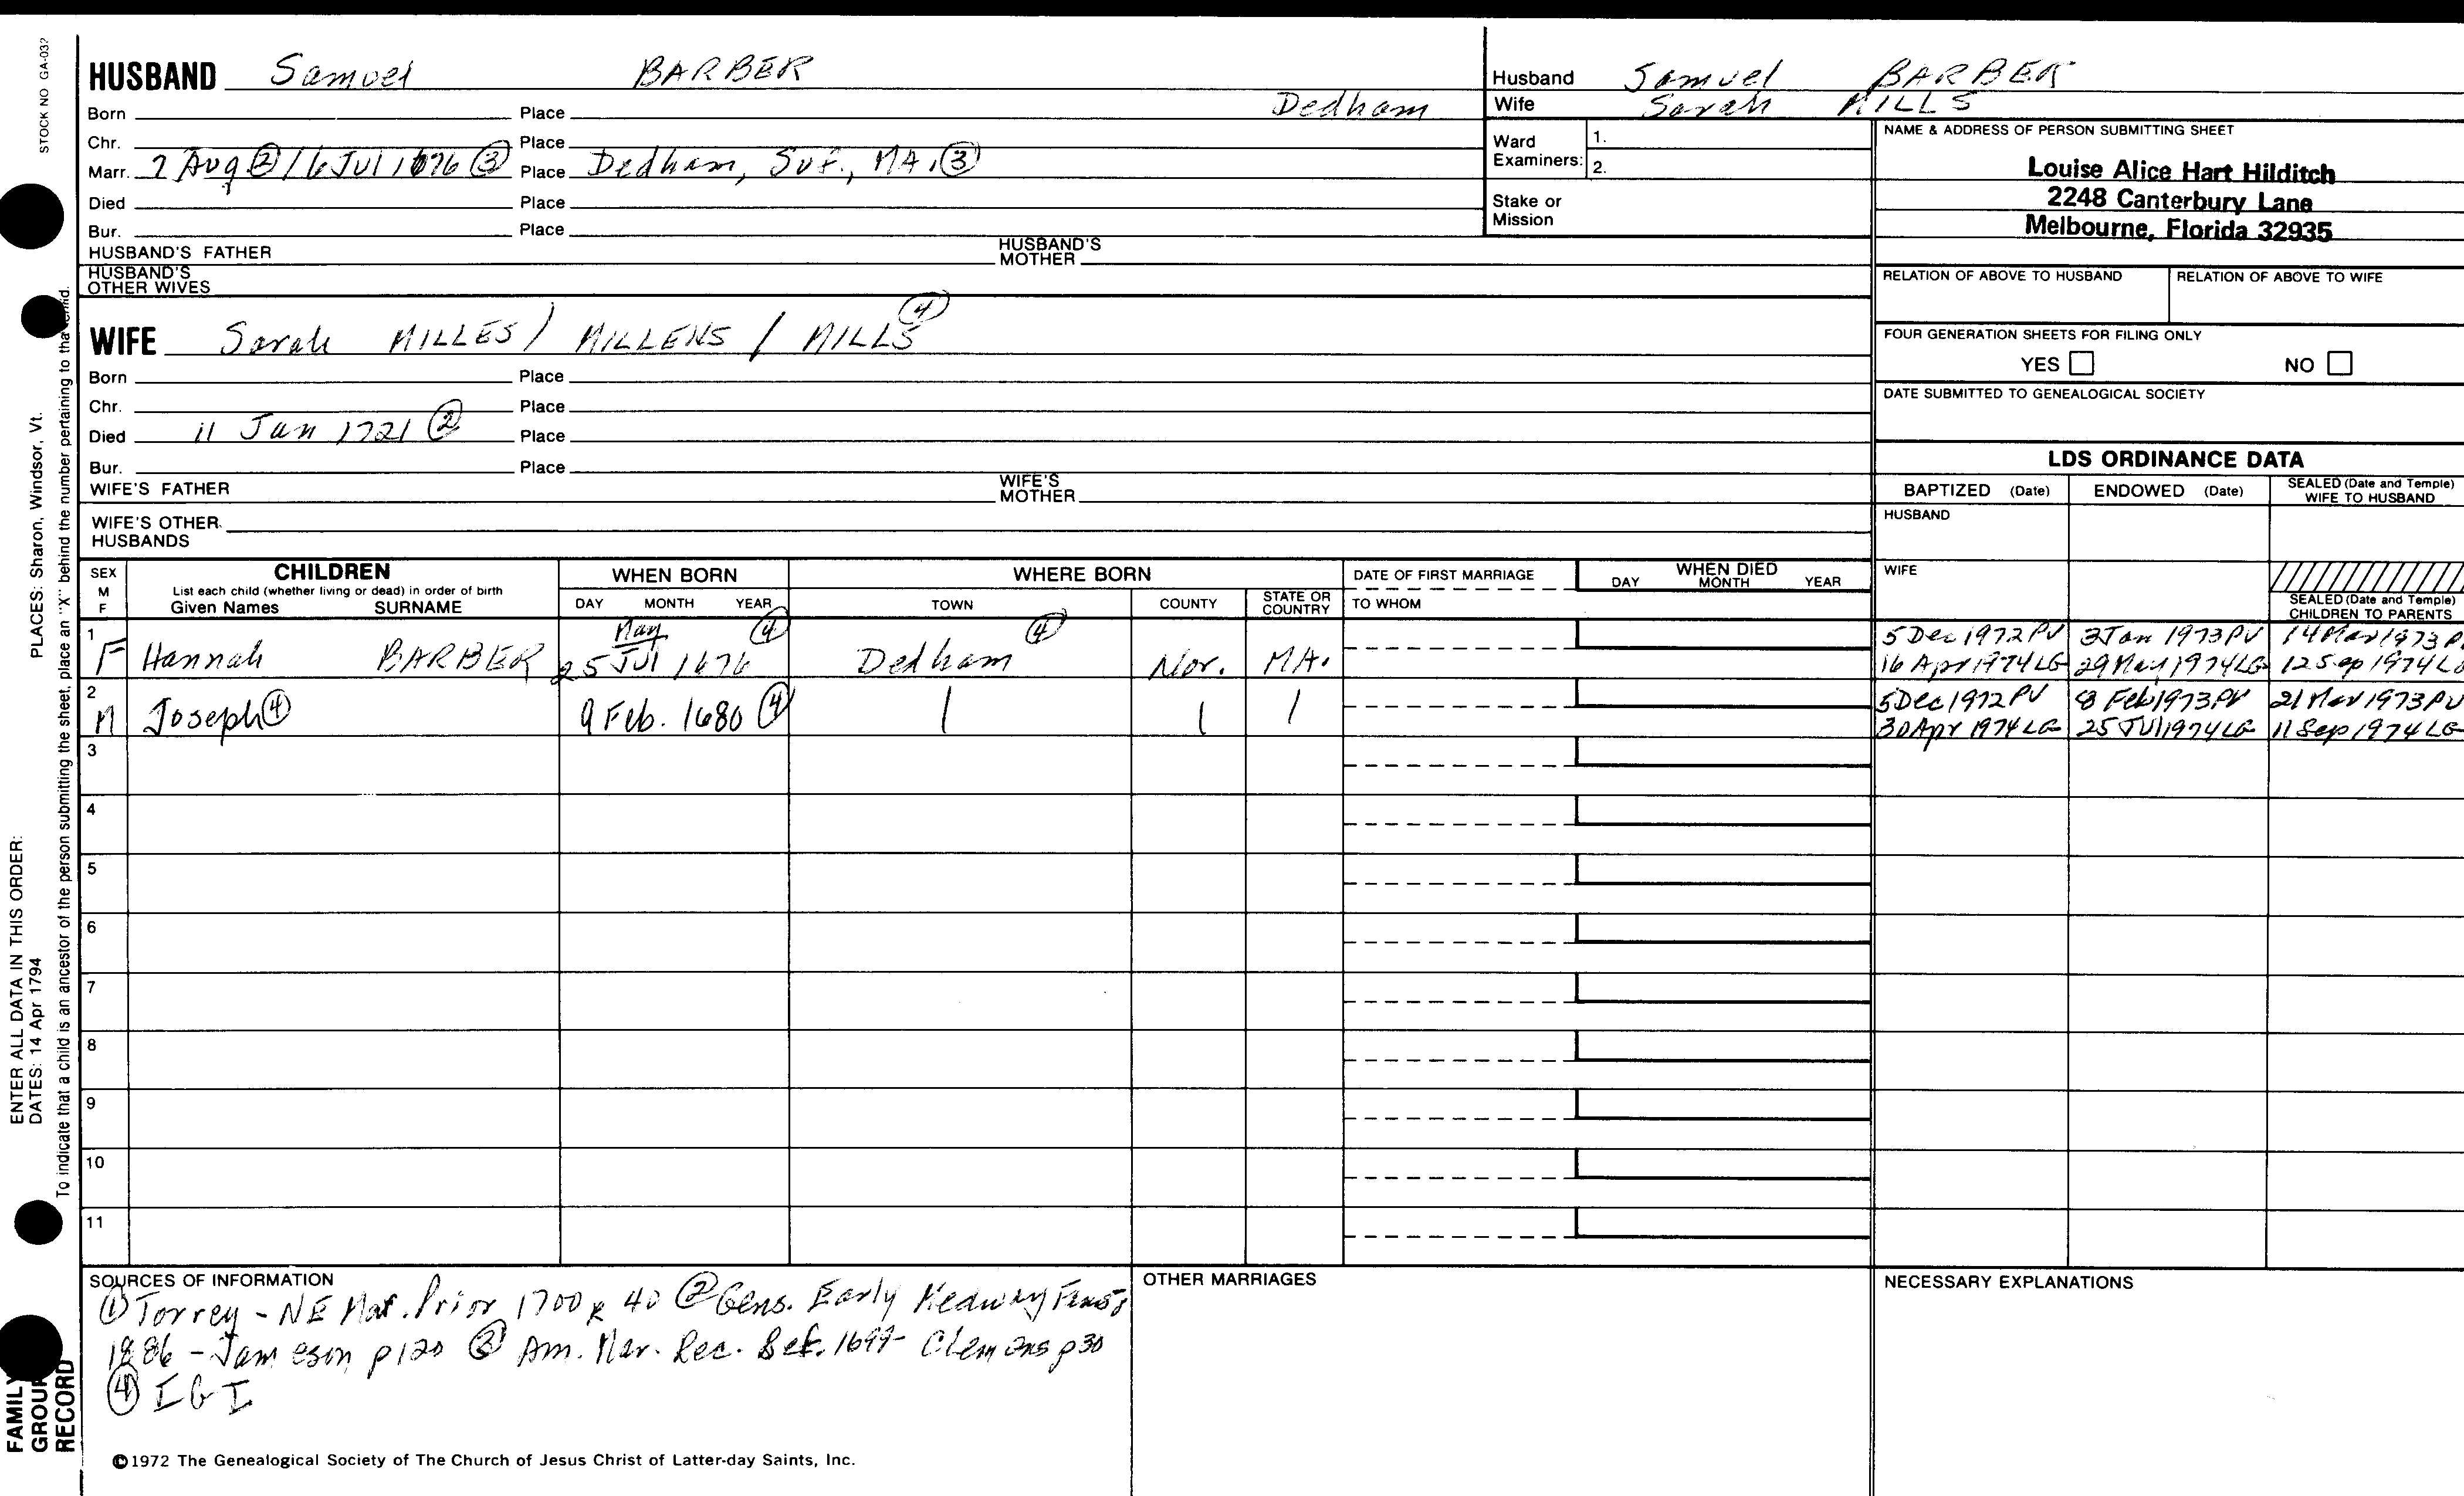 STOCK NO GA-032
HUSBAND Samuel BARBER
Born Place Dedham
Chr. Place
Marr. 7 Aug ② / 6 Jul 1676 ③ Place Dedham, Suf., MA, ③
Died Place
Bur. Place
HUSBAND'S FATHER HUSBAND'S MOTHER
HUSBAND'S OTHER WIVES
Husband Samuel BARBER
Wife Sarah MILLS
Ward Examiners: 1.
2.
Stake or Mission
NAME & ADDRESS OF PERSON SUBMITTING SHEET
Louise Alice Hart Hilditch
2248 Canterbury Lane
Melbourne, Florida 32935
RELATION OF ABOVE TO HUSBAND RELATION OF ABOVE TO WIFE
FOUR GENERATION SHEETS FOR FILING ONLY
YES NO
DATE SUBMITTED TO GENEALOGICAL SOCIETY
WIFE Sarah MILLES / MILLENS / MILLS ④
Born Place
Chr. Place
Died 11 Jan 1721 ② Place
Bur. Place
WIFE'S FATHER WIFE'S MOTHER
WIFE'S OTHER HUSBANDS
LDS ORDINANCE DATA
BAPTIZED (Date) ENDOWED (Date) SEALED (Date and Temple) WIFE TO HUSBAND
HUSBAND
WIFE
SEALED (Date and Temple) CHILDREN TO PARENTS
SEX M F CHILDREN WHEN BORN WHERE BORN DATE OF FIRST MARRIAGE WHEN DIED
List each child (whether living or dead) in order of birth
Given Names SURNAME DAY MONTH YEAR TOWN COUNTY STATE OR COUNTRY TO WHOM DAY MONTH YEAR
1 F Hannah BARBER 25 May Jul 1676 ④ Dedham ④ Nor. MA. 5 Dec 1972 PV 3 Jan 1973 PV 14 Mar 1973 P
16 Apr 1974 LG 29 May 1974 LG 12 Sep 1974 LG
2 M Joseph ④ 9 Feb. 1680 ④ 5 Dec 1972 PV 8 Feb 1973 PV 21 Mar 1973 PV
30 Apr 1974 LG 25 Jul 1974 LG 11 Sep 1974 LG
3
4
5
6
7
8
9
10
11
SOURCES OF INFORMATION
① Torrey - NE Mar. Prior 1700 p 40 ② Gens. Early Medway
1886 - Jameson p120 ③ Am. Mar. Rec. Bef. 1699 - Clemens p30
④ IGI
OTHER MARRIAGES
NECESSARY EXPLANATIONS
©1972 The Genealogical Society of The Church of Jesus Christ of Latter-day Saints, Inc.
ENTER ALL DATA IN THIS ORDER:
DATES: 14 Apr 1794 PLACES: Sharon, Windsor, Vt.
To indicate that a child is an ancestor of the person submitting the sheet, place an "X" behind the number pertaining to that
FAMILY GROUP RECORD